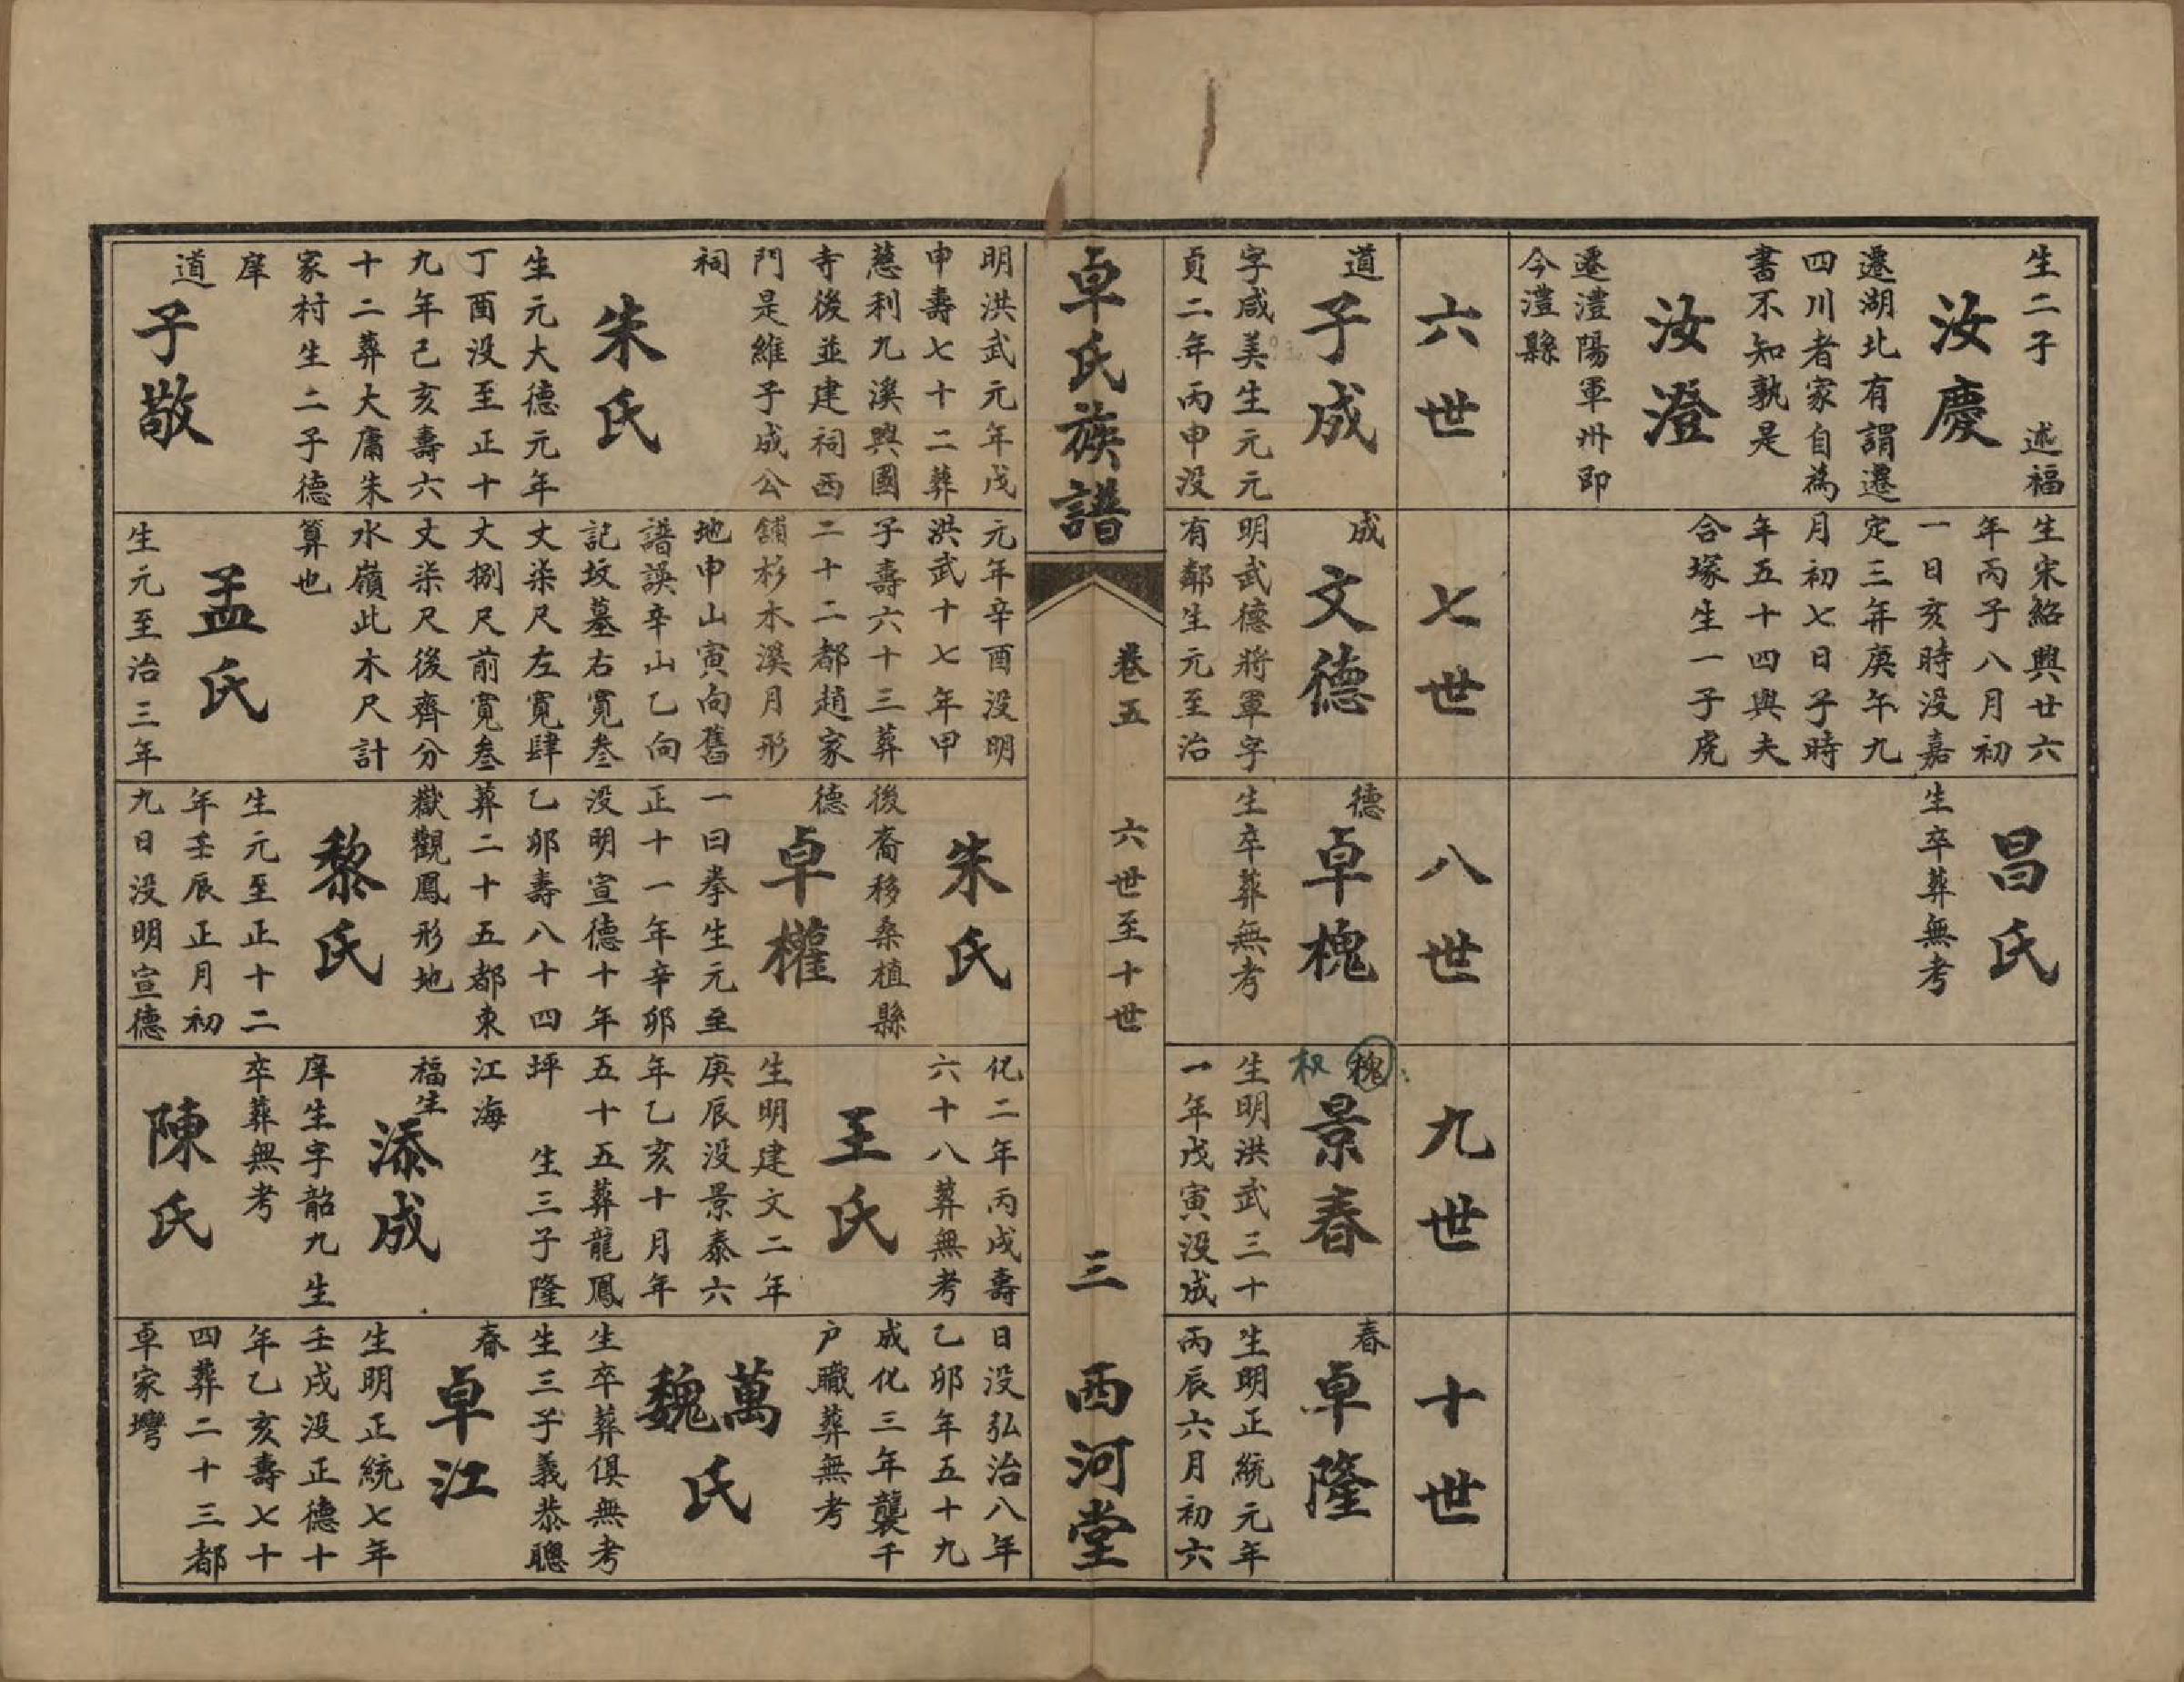 生二子　述福
汝慶
遷湖北有謂遷
四川者家自為
書不知孰是
汝澄
遷澧陽軍州即
今澧縣
生宋紹興廿六
年丙子八月初
一日亥時没嘉
定三年庚午九
月初七日子時
年五十四與夫
合塚生一子虎
昌氏
生卒葬無考
六世
七世
八世
九世
十世
道
子成
字咸美生元元
貞二年丙申没
成
文德
明武德將軍字
有鄰生元至治
德
卓槐
生卒葬無考
槐
权
景春
生明洪武三十
一年戊寅没成
春
卓隆
生明正統元年
丙辰六月初六
卓氏族譜
卷五
六世至十世
三
西河堂
明洪武元年戊
申壽七十二葬
慈利九溪興國
寺後並建祠西
門是維子成公
祠
朱氏
生元大德元年
丁酉没至正十
九年己亥壽六
十二葬大庸朱
家村生二子德
庠
道
子敬
元年辛酉没明
洪武十七年甲
子壽六十三葬
二十二都趙家
舖杉木溪月形
地申山寅向舊
譜誤辛山乙向
記坟墓右寬叁
丈柒尺左寬肆
丈捌尺前寬叁
丈柒尺後齊分
水嶺此木尺計
算也
孟氏
生元至治三年
朱氏
後裔移桑植縣
德
卓權
一曰拳生元至
正十一年辛卯
没明宣德十年
乙卯壽八十四
葬二十五都東
嶽觀鳳形地
黎氏
生元至正十二
年壬辰正月初
九日没明宣德
化二年丙戌壽
六十八葬無考
王氏
生明建文二年
庚辰没景泰六
年乙亥十月年
五十五葬龍鳳
坪　生三子隆
江海
福生
添成
庠生字韶九生
卒葬無考
陳氏
日没弘治八年
乙卯年五十九
成化三年襲千
户職葬無考
萬
魏
氏
生卒葬俱無考
生三子義恭聰
春
卓江
生明正統七年
壬戌没正德十
年乙亥壽七十
四葬二十三都
卓家灣